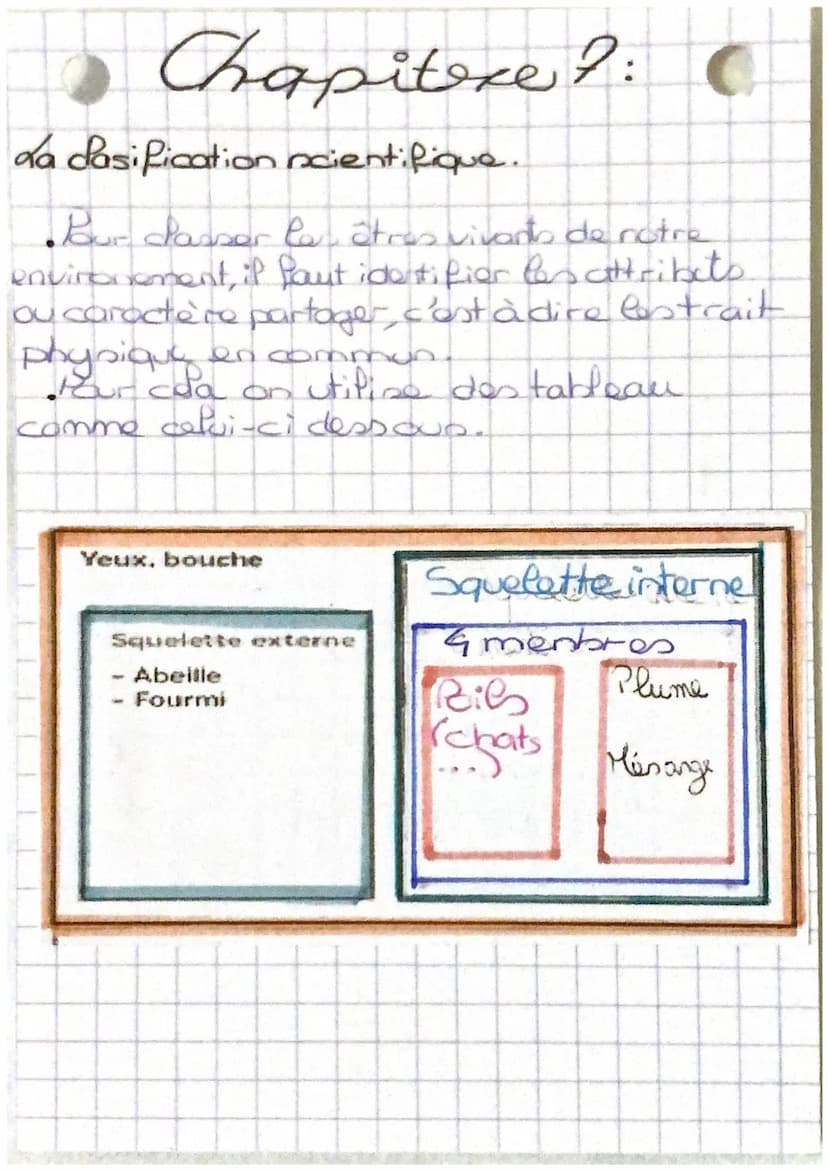 Chapitere 7:
La clasification scientifique.
. Pour classer les êtres vivants de notre
environement, il faut identifier les attributs
ou caractère partager, c'est à dire les trait
physique en commun.
. Pour cela on utilise des tableau
comme celui-ci dessous.
Yeux, bouche
Squelette interne
Squelette externe
- Abeille
- Fourmi
4 menbres
Poils
(chats
...)
Plume
Mésange